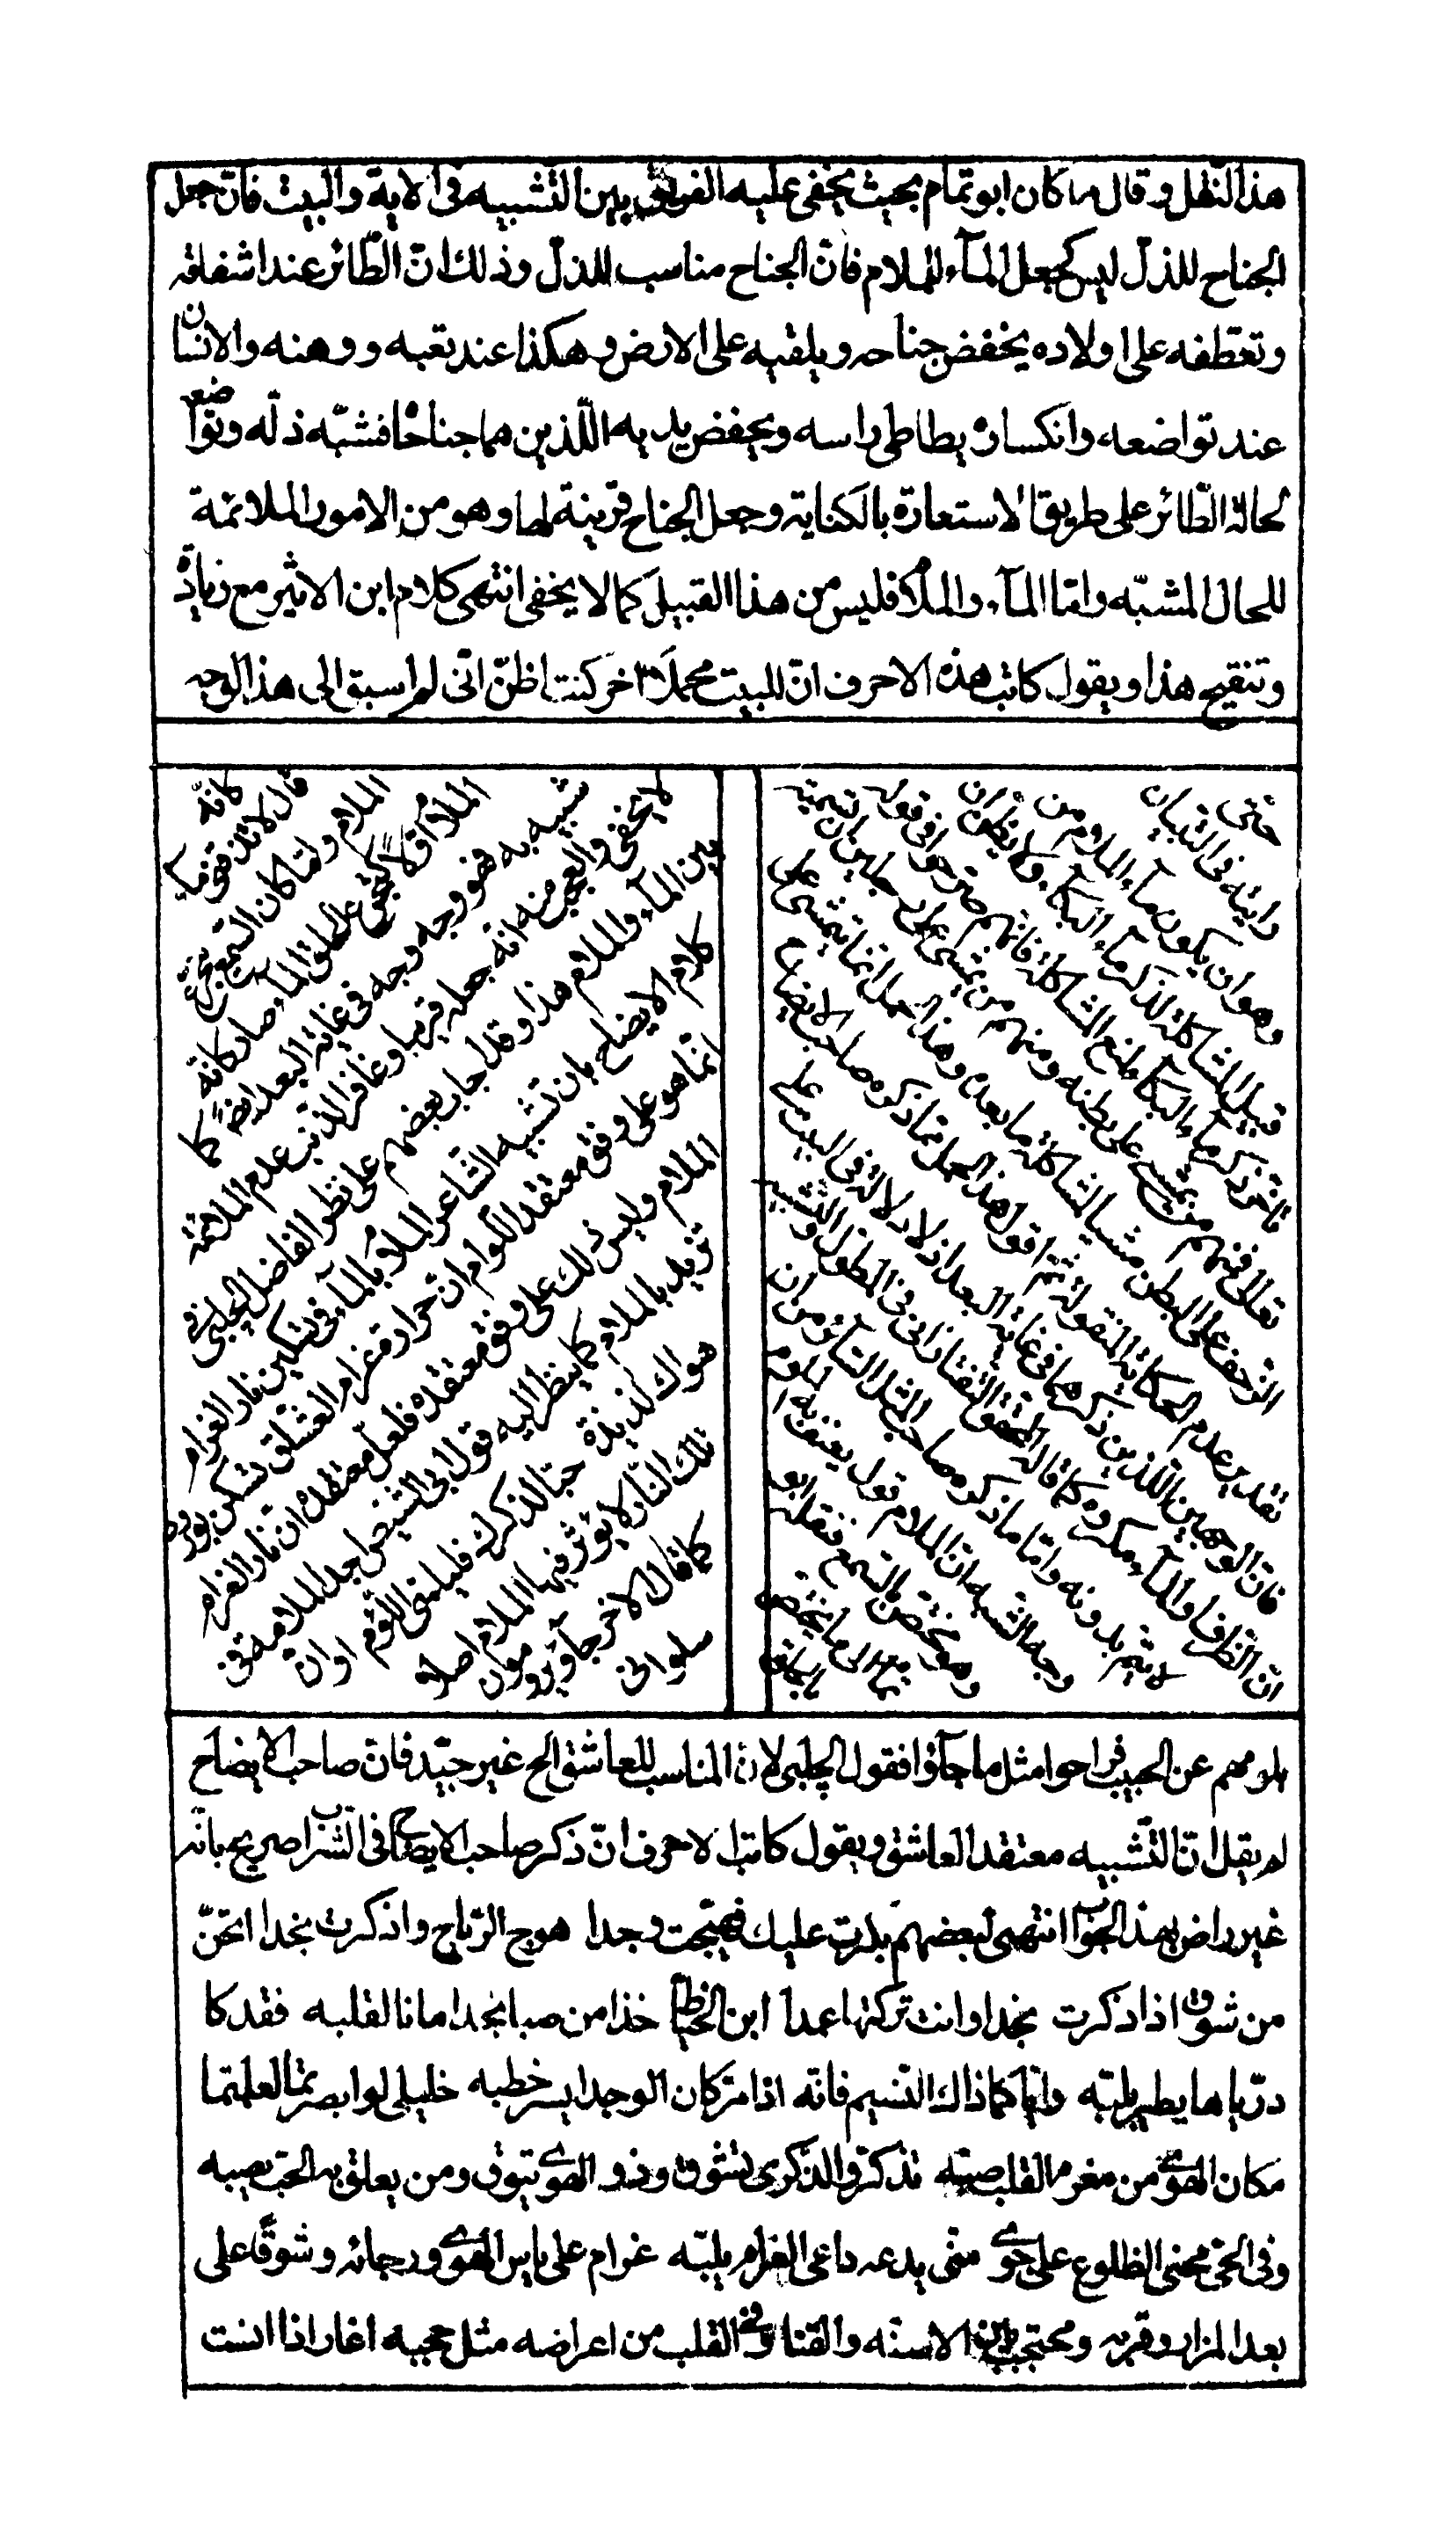 هذا النّقل وقال ما كان ابو تمّام بحيث يخفى عليه الفرق بين التّشبيه فى الاية والبيت فانّ جعل
الجناح للذلّ ليس كجعل المآء للملام فانّ الجناح مناسب للذلّ وذلك انّ الطّائر عند اشفاقه
وتعطّفه على اولاده يخفض جناحه ويلقيه على الارض وهكذا عند تعبه ووهنه والانسان
عند تواضعه وانكساره يطاطى راسه ويخفض يديه اللّذين هما جناحاه فشبّه ذلّه وتواضعه
لحالة الطّائر على طريق الاستعارة بالكناية وجعل الجناح قرينة لها وهو من الامور الملائمة
للحال المشبّه وامّا المآء والملام فليس من هذا القبيل كما لا يخفى انتهى كلام ابن الاثير مع زيادة
وتنقيح هذا ويقول كاتب هذه الاحرف انّ للبيت محملا اخر كنت اظنّ انّى لم اسبق الى هذا الوجه
حتى رايته فى التبيان
وهو ان يكون مآء الملام من
قبيل المشاكلة لذكر مآء البكآء ولا يظنّ ان
تاخّر ذكر مآء البكآء يمنع المشاكلة فانّهم صرّحوا فى قوله
تعالى فمنهم من يمشى على بطنه ومنهم من يمشى على رجلين ان تسمية
الزّحف على البطن مشيا لمشاكلة ما بعده وهذا الحمل انّما يتمشّى على
تقدير عدم الحكاية المنقولة ثم اقول هذا الحمل ممّا ذكره صاحب الايضاح
فانّ الوجهين اللّذين ذكرهما فى غاية البعد اذ لا دلالة فى البيت على
انّ الظّرف والمآء مكروه كما قاله المحقّق التّفتازانى فى المطول والتّشبيه
لا يتمّ بدونه وامّا ما ذكره صاحب المثل السّائر من ان
وجه الشّبه انّ الملام قول يعنف به الملوم
وهو مختصّ بالسّمع فنقله ابو
تمّام الى ما يختصّ
بالحلق
كانّه
قال لا تذقنى
الملام ولمّا كان السّمع يتجرّع
الملام اوّلا كتجرّع الحلق المآء صار كانّه
شبيه به فهو وجه وجه فى غاية البعد ايضاً كما
لا يخفى والعجب منه انّه جعله قريبا وغافر الذّنب عدم الملائمة
بين المآء والملام هذا وقد اجاب بعضهم على نظر الفاضل الچلبى فى
كلام الايضاح بان تشبيه الشّاعر الملام بالمآء فى تسكين نار الغرام
انّما هو على وفق معتقد اللّوام انّ حرارة غرام العشّاق تسكن بورود
الملام وليس ذلك على وفق معتقده فلعلّ معتقده ان نار الغرام
تزيد بالملام كما ينظر اليه قول ابى الشّيص اجد الملامة فى
هواك لذيذة حبّا لذكرك فليلمنى اللّوّم او انّ
تلك النّار لا يؤثّر فيها الملام اصلا
كما قال الاخر جآؤا يرومون
سلوانى
بلومهم عن الحبيب فراحوا مثل ما جآؤا فقول الچلبى لانّ المناسب للعاشق الخ غير جيّد فانّ صاحب الايضاح
لم يقل انّ التّشبيه معتقد العاشق ويقول كاتب الاحرف انّ ذكر صاحب الايضاح فى الشراب صريح بانّه
غير راض بهذا الجواب انتهى لبعضهم بدرت عليك فهيّجت وجدا هوج الرّياح واذكرت نجدا اتحنّ
من شوق اذا ذكرت نجدا وانت تركتها عمدا ابن الخيّاط خذا من صبا نجد امانا لقلبه فقد كا
د ريّاها يطير بلبّه وايّاكما ذاك النّسيم فانّه اذا مرّ كان الوجد ايسر خطبه خليلى لو ابصرتما لعلمتما
مكان الهوى من مغرم القلب صبّه تذكّر والذّكرى تشوق وذو الهوى يتوق ومن يعلق به الحبّ يصبه
وفى الحىّ محنىّ الظلوع على جوى متى يدعه داعى الغرام يلبّه غرام على ياس الهوى ورجائه وشوق على
بعد المزار وقربه ومحتجب بين الاسنّه والقنا وفى القلب من اعراضه مثل حجبه اغار اذا انست